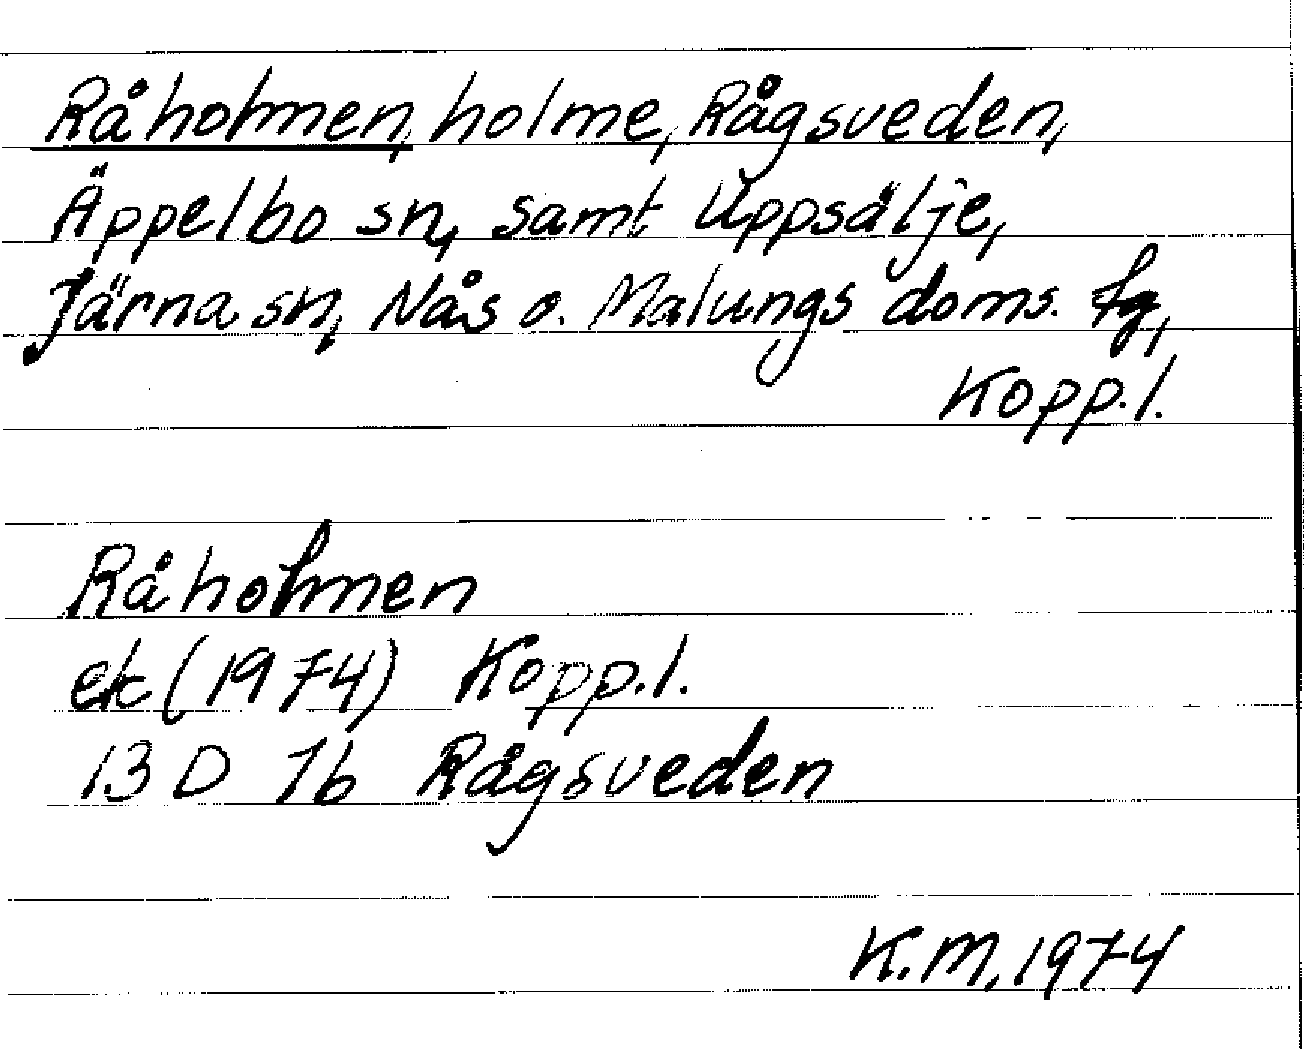 Råholmen, holme, Rågsveden,
Äppelbo sn, samt Uppsälje,
Järna sn, Nås o. Malungs doms. fg,
Kopp.l.
Råholmen
ek (1974) Kopp.l.
13 D 7b Rågsveden
K.M, 1974